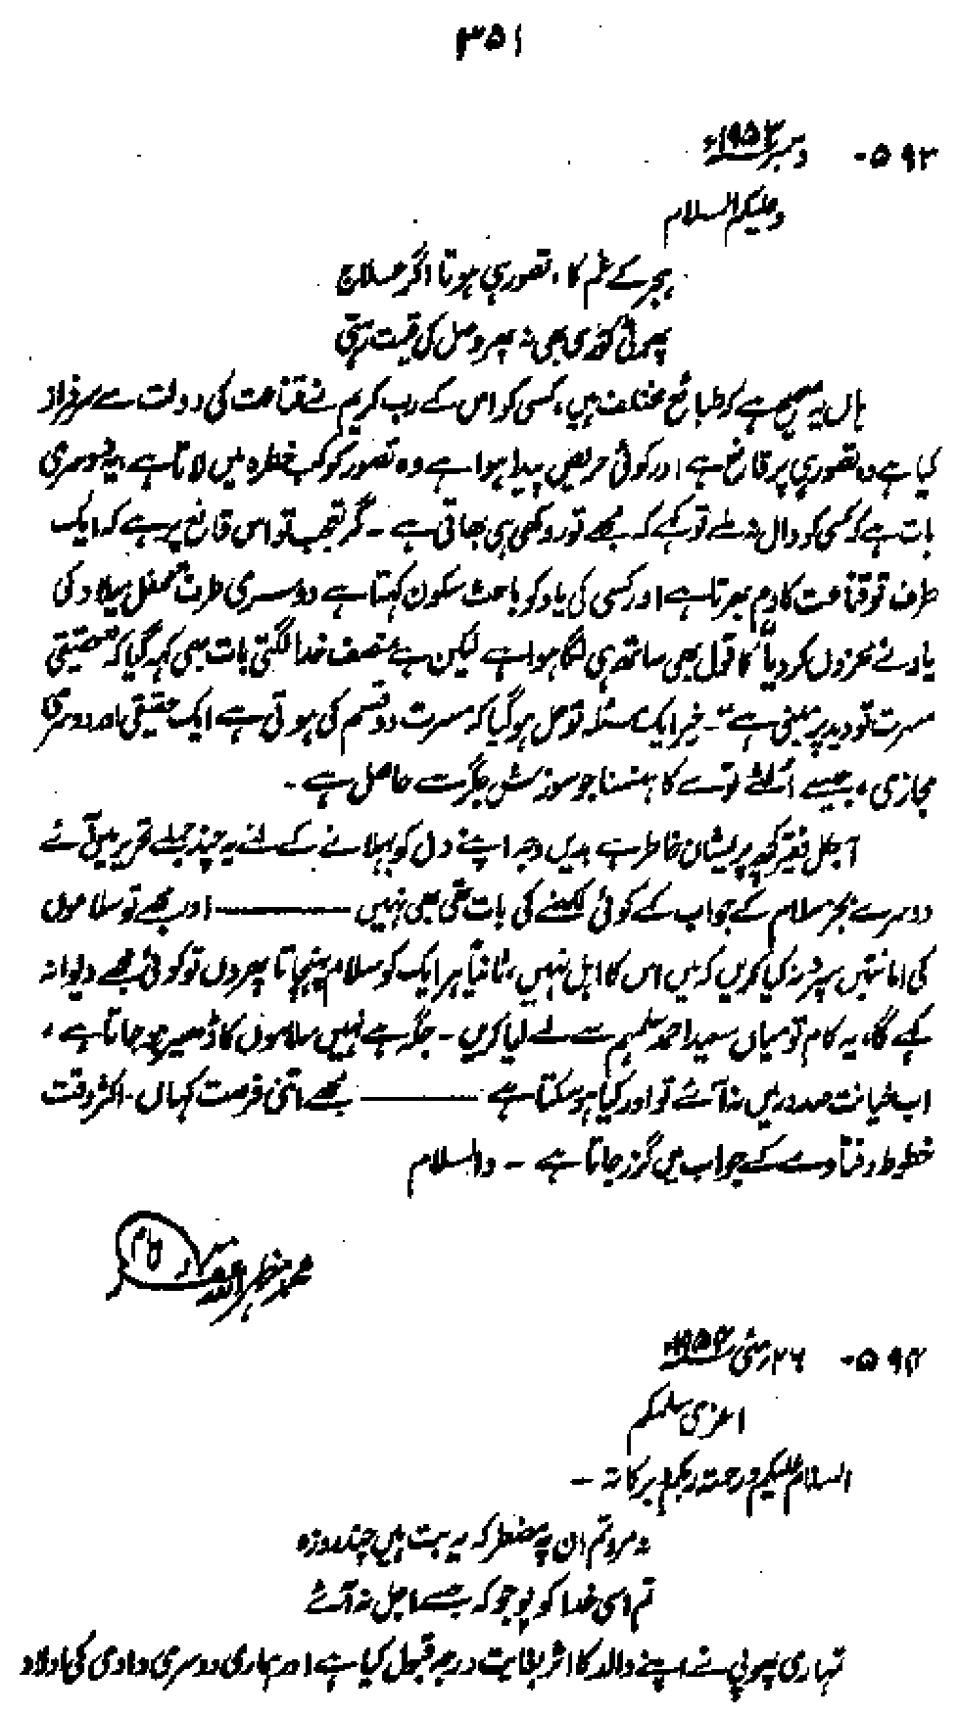 ۳۵۱
۵۹۳- دسمبر ۱۹۵۳ء
وعلیکم السلام
ہجر کے غم کا، تصور ہی ہوتا اگر علاج
پھوٹی کوڑی بھی نہ پھر وصل کی قیمت رہتی
ہاں یہ صحیح ہے کہ طبائع مختلف ہیں، کسی کو اس کے رب کریم نے قناعت کی دولت سے سرفراز
کیا ہے وہ تصور ہی پر قانع ہے اور کوئی حریص پیدا ہوا ہے وہ تصور کو کب خطرہ میں لاتا ہے یہ دوسری
بات ہے کہ کسی کو دال نہ ملے تو کہے کہ مجھے تو روکھی ہی بھاتی ہے ۔ مگر تعجب تو اس قانع پر ہے کہ ایک
طرف تو قناعت کا دم بھرتا ہے اور کسی کی یاد کو باعث سکون کہتا ہے دوسری طرف "محفل میلاد کی
یاد نے محزوں کر دیا" کا قول بھی ساتھ ہی لگا ہوا ہے لیکن ہے منصف خدا لگتی بات بھی کہہ گیا کہ "حقیقی
مسرت تو دید پر مبنی ہے" ۔ خیر ایک مسئلہ تو حل ہو گیا کہ مسرت دو قسم کی ہوتی ہے ایک حقیقی اور دوسری
مجازی، جیسے الٹے توے کا ہنسنا جو سوزش جگر سے حاصل ہے ۔
آجکل فقیر کچھ پریشان خاطر ہے بدیں وجہ اپنے دل کو بہلانے کے لئے یہ چند جملے تحریر میں آئے
دوسرے بجز سلام کے جواب کے کوئی لکھنے کی بات تھی بھی نہیں ——— اور مجھے تو سلاموں
کی امانتیں سپرد نہ کیا کریں کہ میں اس کا اہل نہیں، ثانیاً ہر ایک کو سلام پہنچاتا پھروں تو کوئی مجھے دیوانہ
کہے گا، یہ کام تو میاں سعید احمد سلمہم سے لے لیا کریں ۔ جگہ ہے نہیں سلاموں کا ڈھیر ہو جاتا ہے،
اب خیانت صدور میں نہ آئے تو اور کیا ہو سکتا ہے ——— مجھے اتنی فرصت کہاں۔ اکثر وقت
خطوط و فتاوے کے جواب میں گزر جاتا ہے ۔ والسلام
محمد مظہر اللہ
۵۹۴- ۲۶ مئی ۱۹۵۴ء
اعزی سلمکم
السلام علیکم ورحمۃ ربکم وبرکاتہ —
نہ مرو تم ان پہ مضطر کہ یہ بت ہیں چند روزہ
تم اسی خدا کو پوجو کہ جسے اجل نہ آئے
تمہاری پھوپی نے اپنے والد کا اثر بغایت درجہ قبول کیا ہے اور ہماری دوسری دادی کی اولاد